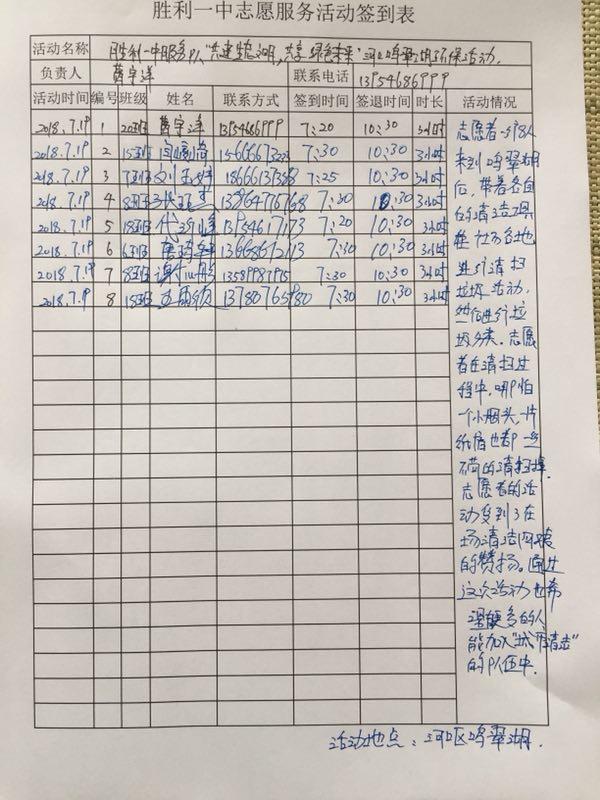 胜利一中志愿服务活动签到表
活动名称 胜利一中服务队"共建生态湖，共享绿色未来"河口鸣翠湖环保活动.
负责人 宇洋 联系电话 13954686999
活动时间 编号 班级 姓名 联系方式 签到时间 签退时间 时长 活动情况
2018.7.19 1 20班 宇洋 13954686999 7:20 10:30 3小时
2018.7.19 2 15班 7:30 10:30 3小时
2018.7.19 3 刘玉婷 7:25 10:30 3小时
2018.7.19 4 8班 7:30 10:30 3小时
2018.7.19 5 18班 7:20 10:30 3小时
2018.7.19 6 6班 7:30 10:30 3小时
2018.7.19 7 8班 13589987915 7:30 10:30 3小时
2018.7.19 8 15班 7:30 10:30 3小时
志愿者一行8人
来到鸣翠湖
后，带着各自
的清洁工具
在广场各地
进行清扫
垃圾活动，
然后进行垃
圾分类。志愿
者在清扫过
程中，哪怕
一个小烟头，一片
纸屑也都一丝
不苟的清扫掉.
志愿者的活
动受到了在
场清洁阿姨
的赞扬。通过
这次活动也希
望能更多的人
能加入"城市清洁"
的队伍中.
活动地点：河口区鸣翠湖.